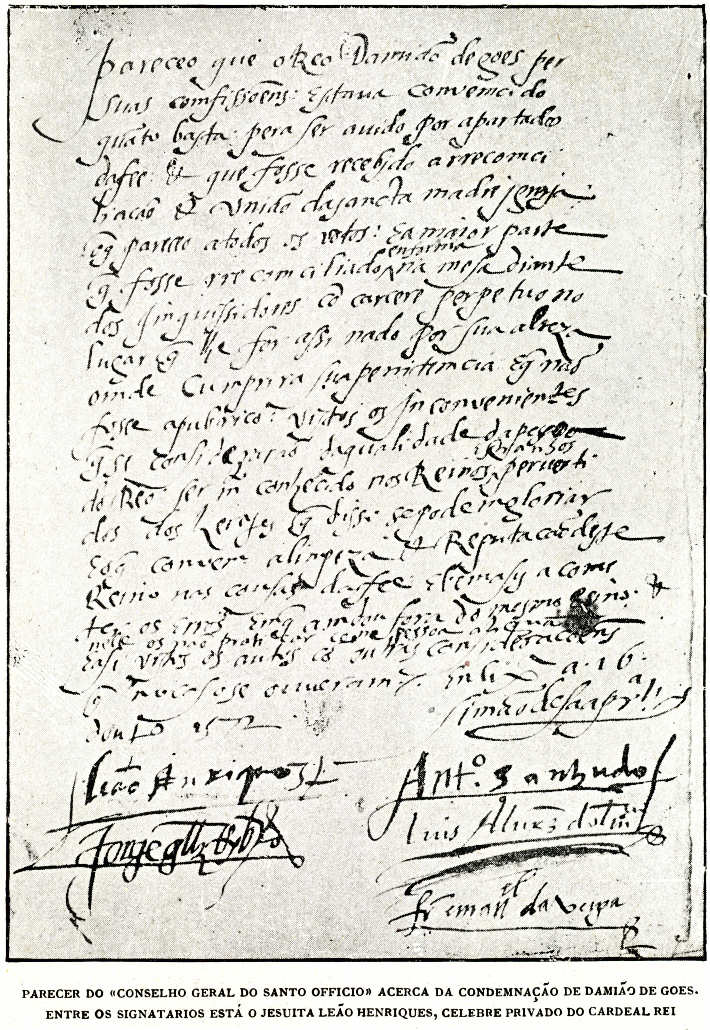 pareceo que o Reo Damião de goes per
suas comfissoẽns: Estaua convemcido
quãto basta pera ser auido por apartado
dafee: & que fosse recebido a rrecomci
liacaõ & vniaõ dasancta madre jgreja
Eq̃ pareceo atodos os votos: Eamaior parte
q̃ fosse rrecomciliado em forma na mesa diante
dos Inquisidores cõ carcere perpetuo no
lugar q̃ lhe for assinado por sua alteza
omde Cumprira suapenitemcia Eq̃ naõ
fosse apubrico: vistos os Inconvenientes
q̃ se consideraraõ daqualidade dapessoa
do Reo ser m conhecido nos Reinos estranhos pervert
dos dos Erejes q̃ disse sepode gloriar
Eoq̃ convem alimpeza & Reputacaõ deste
Reino nas cousas dafee &
ter os erros Emq̃ andou fora do mesmo Reino: &
nele os naõ
Easi vistos os autos cõ outras consideracoẽns
q̃ no caso se ouueram Em lixª a .16.
dout.º 1572
simão desaa prª
liaõ Anriquez
Ant.º Sanhudo
Jorge glz Rybrº
luis Alurz dolivrª
fr. manel da veiga
PARECER DO «CONSELHO GERAL DO SANTO OFFICIO» ACERCA DA CONDEMNAÇÃO DE DAMIÃO DE GOES.
ENTRE OS SIGNATARIOS ESTÁ O JESUITA LEÃO HENRIQUES, CELEBRE PRIVADO DO CARDEAL REI